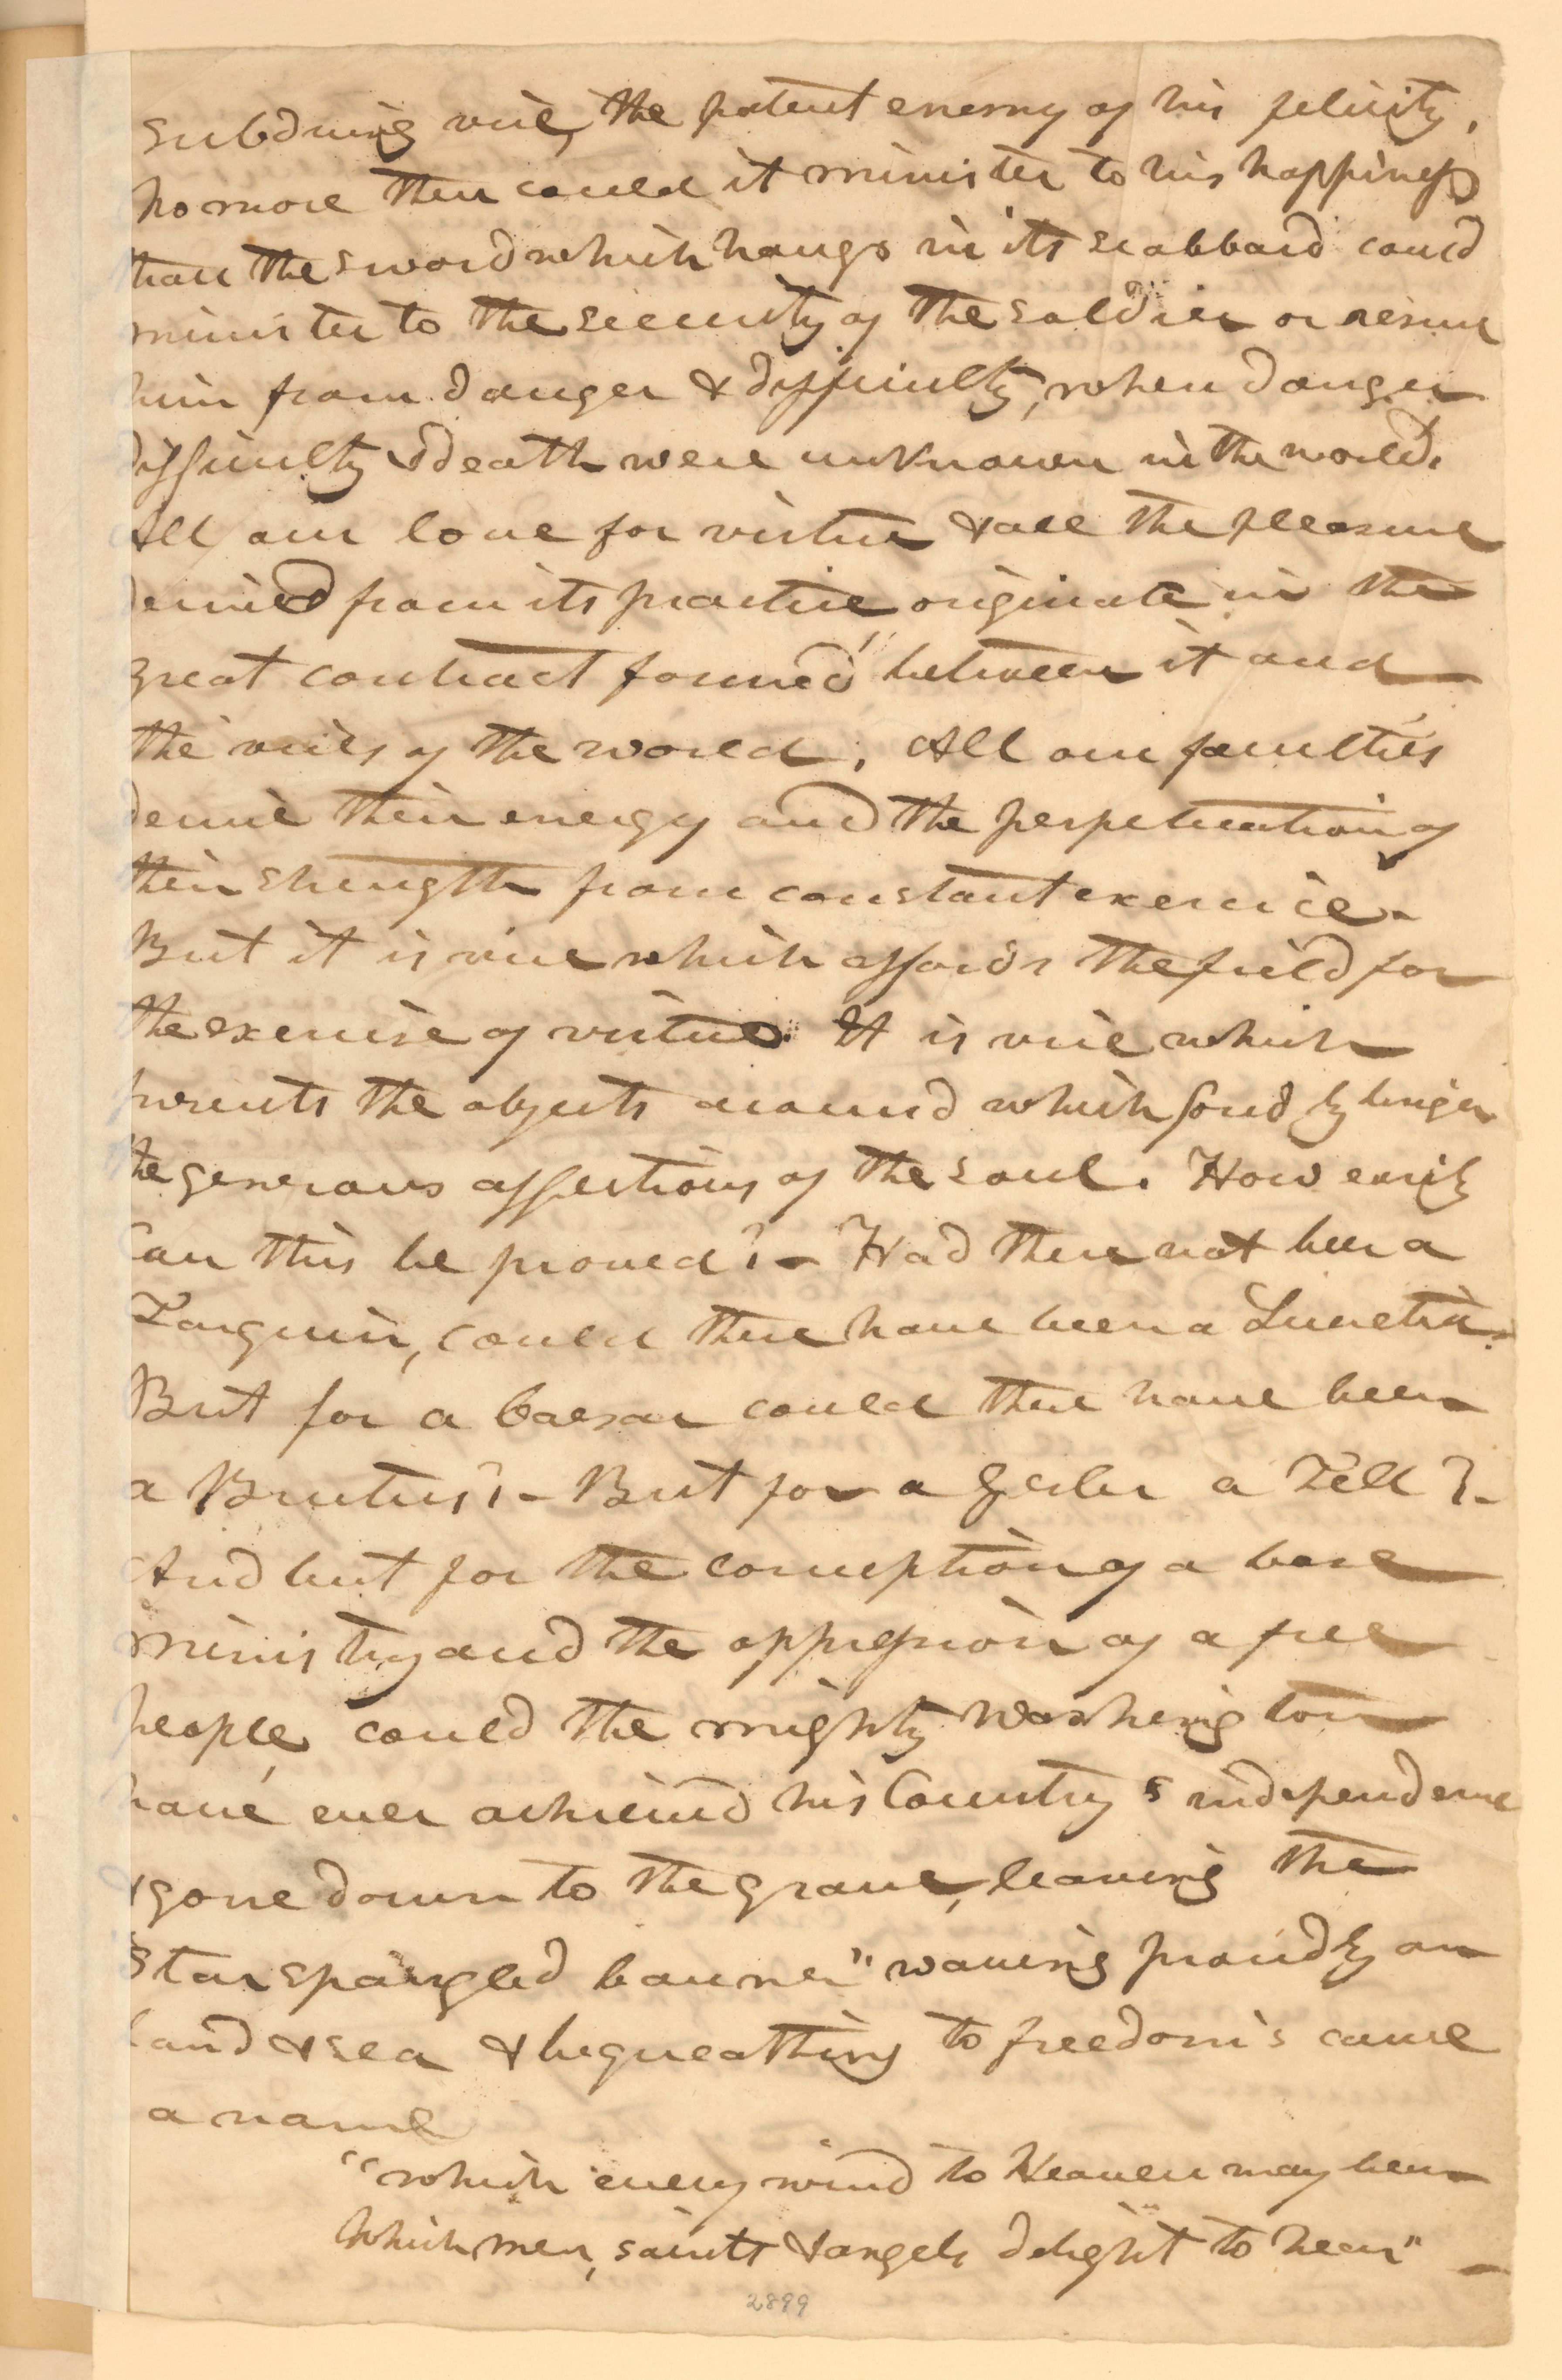 subduing vice, the potent enemy of his felicity,
no more then could it minister to his happiness
than the sword which hangs in its scabbard could
minister to the security of the soldier or rescue
him from danger & difficulty, when danger
difficulty & death were unknown in the world.
All our love for virtue & all the pleasure
derived from its practice originate in the
great contract formed between it and
the vices of the world. All our faculties
derive their energy and the perpetuation of
their strength from constant exercise.
But it is vice which affords the field for
the exercise of virtue. It is vice which
presents the objects around which fondly linger
the generous affections of the soul. How easily
can this be proved? - Had there not been a
Tarquin, could there have been a Lucretia?
But for a Caesar could there have been
a Brutus? - But for a Gesler a Tell? -
And but for the corruption of a base
ministry and the oppression of a free
people, could the mighty Washington
have ever achieved his Country's independence
& gone down to the grave, leaving the
Star spangled banner" waving proudly on
land & sea & bequeathing to freedom's cause
a name
"which every wind to Heaven may bear
Which men, saints & angels delight to hear" -
2899